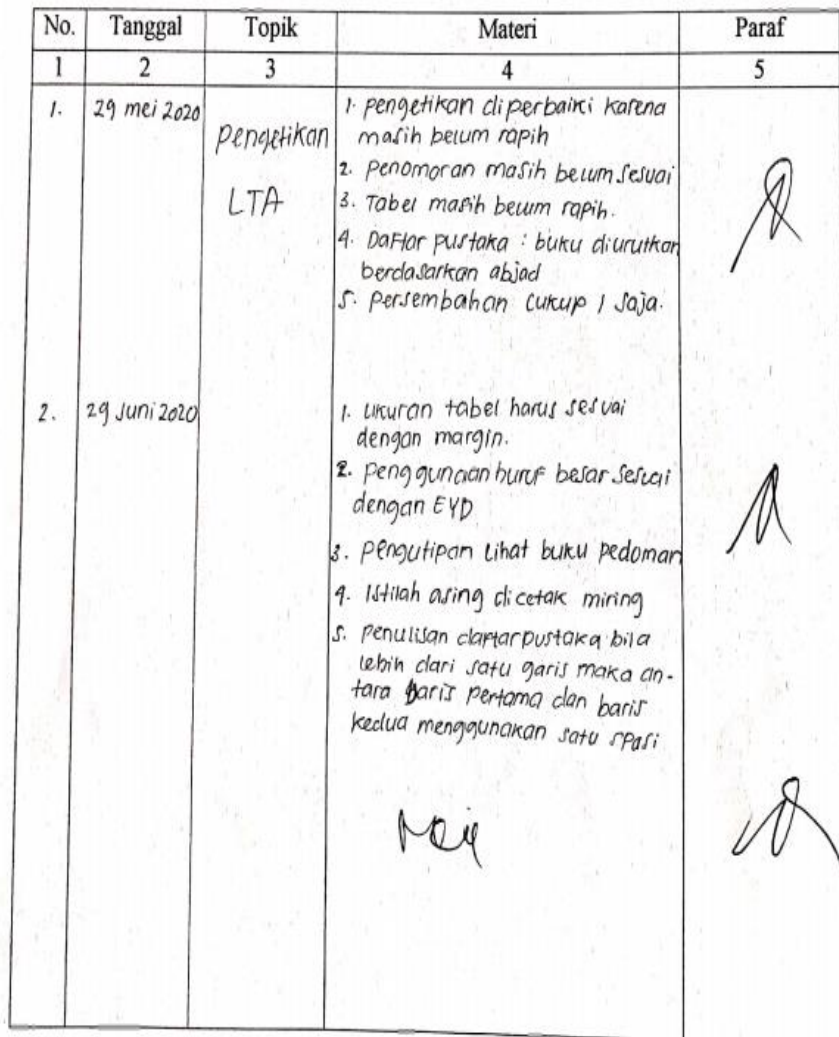 No. Tanggal Topik Materi Paraf
1 2 3 4 5
1. 29 mei 2020 pengetikan LTA
1. pengetikan diperbaiki karena
masih belum rapih
2. Penomoran masih belum sesuai
3. Tabel masih belum rapih.
4. Daftar pustaka : buku diurutkan
berdasarkan abjad
5. persembahan cukup 1 saja.
2. 29 Juni 2020
1. ukuran tabel harus sesuai
dengan margin.
2. penggunaan huruf besar sesuai
dengan EYD
3. pengutipan lihat buku pedoman
4. Istilah asing dicetak miring
5. penulisan daftar pustaka bila
lebih dari satu garis maka an-
tara baris pertama dan baris
kedua menggunakan satu spasi